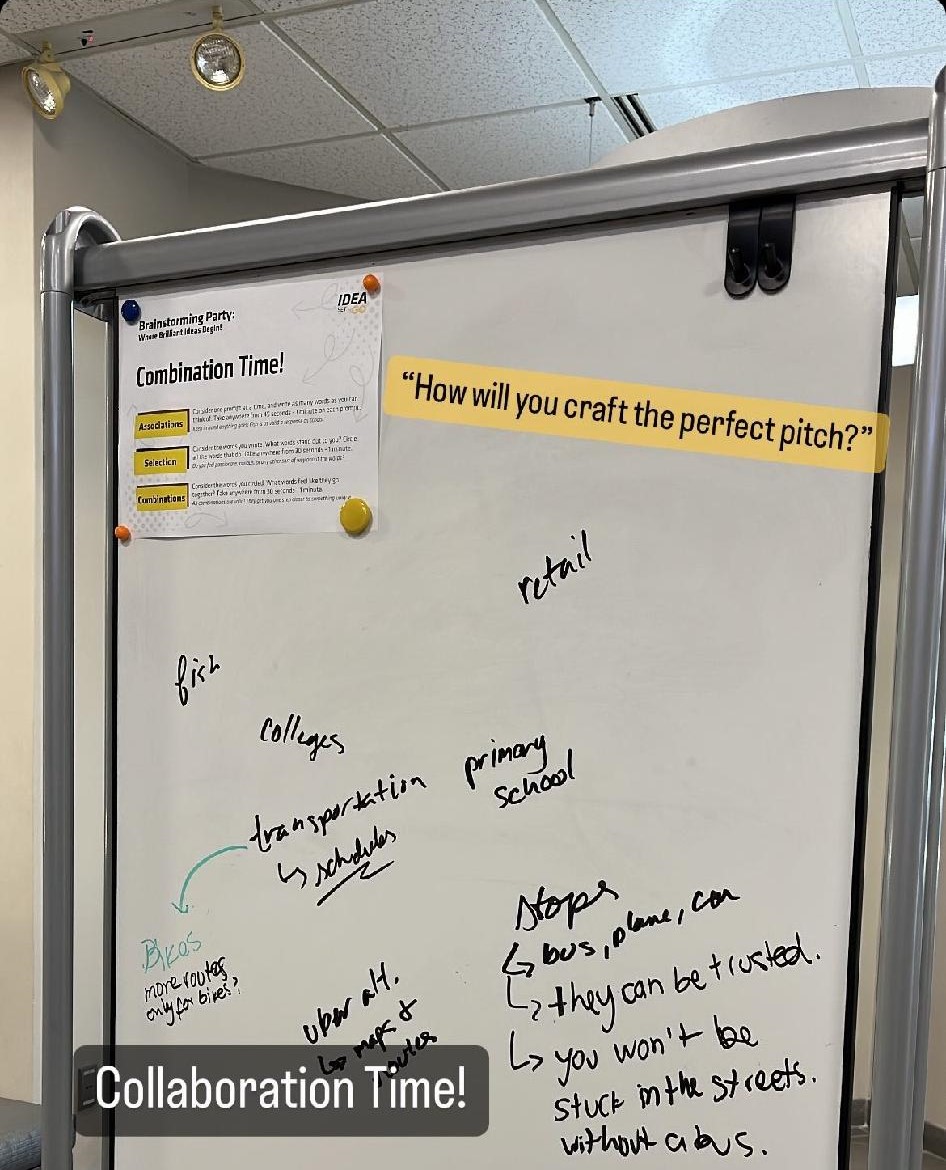 IDEA
Brainstorming Party:
Where Brilliant Ideas Begin!
Combination Time!
Associations
Selection
Combinations
“How will you craft the perfect pitch?”
retail
fish
colleges
primary
school
transportation
↳ schedules
Bikes
more routes
only for bikes?
uber alt.
↳ maps &
routes
Stops
↳ bus, plane, car
↳ they can be trusted.
↳ you won't be
stuck in the streets.
without a bus.
Collaboration Time!